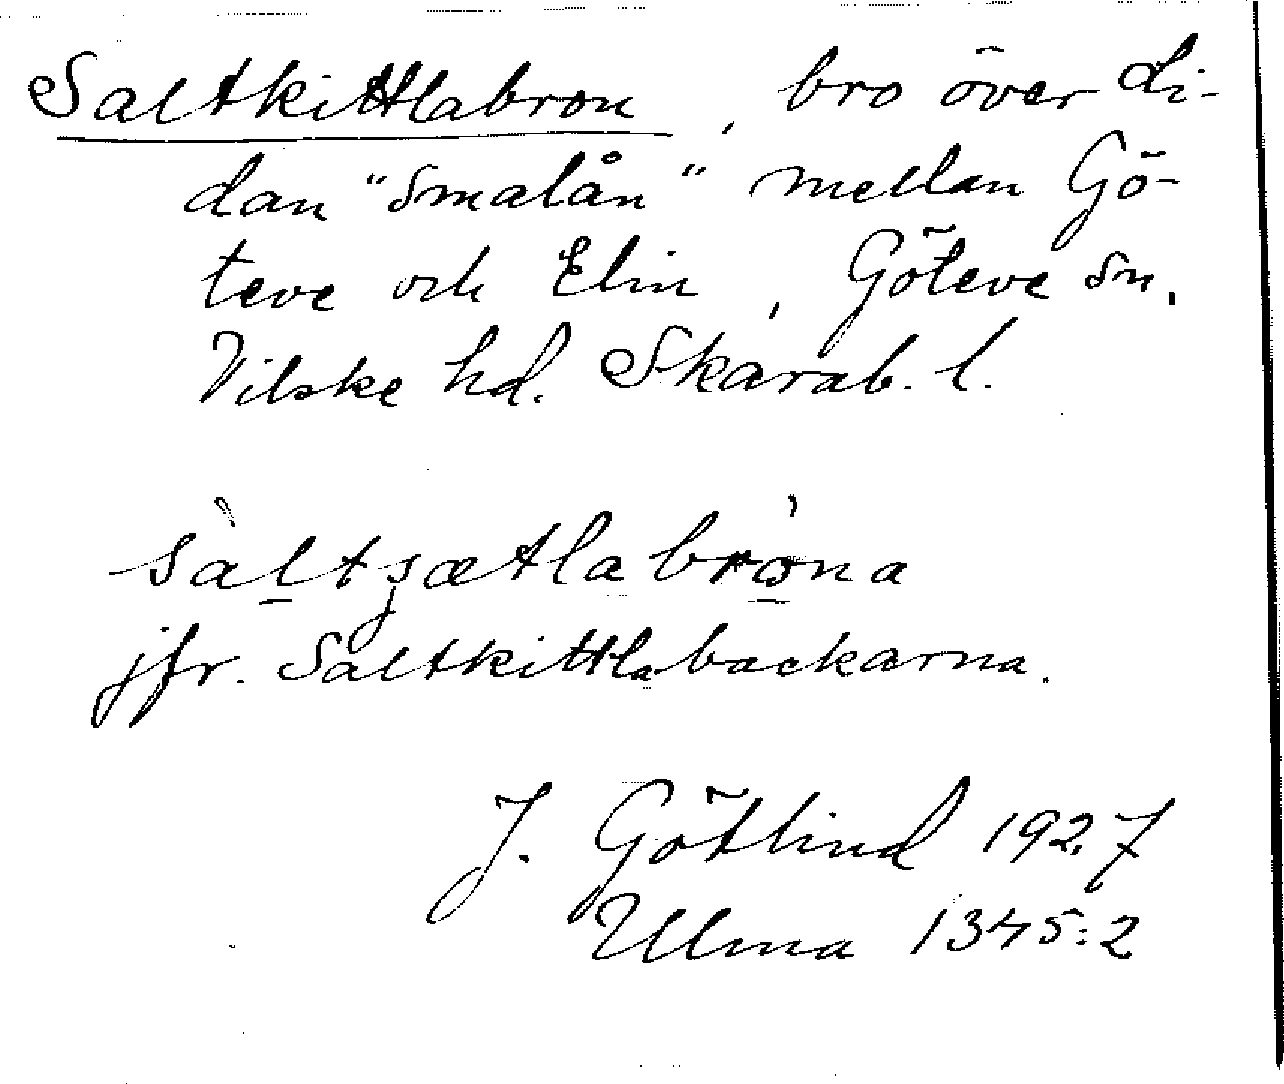 Saltkittlabron, bro över Li-
dan "Smalån" mellan Gö-
teve och Elin, Göteve sn,
Vilske hd. Skarab. l.
sàltʒætlabrö́na
jfr. Saltkittlabackarna.
J. Götlind 1927
Ulma 1345:2